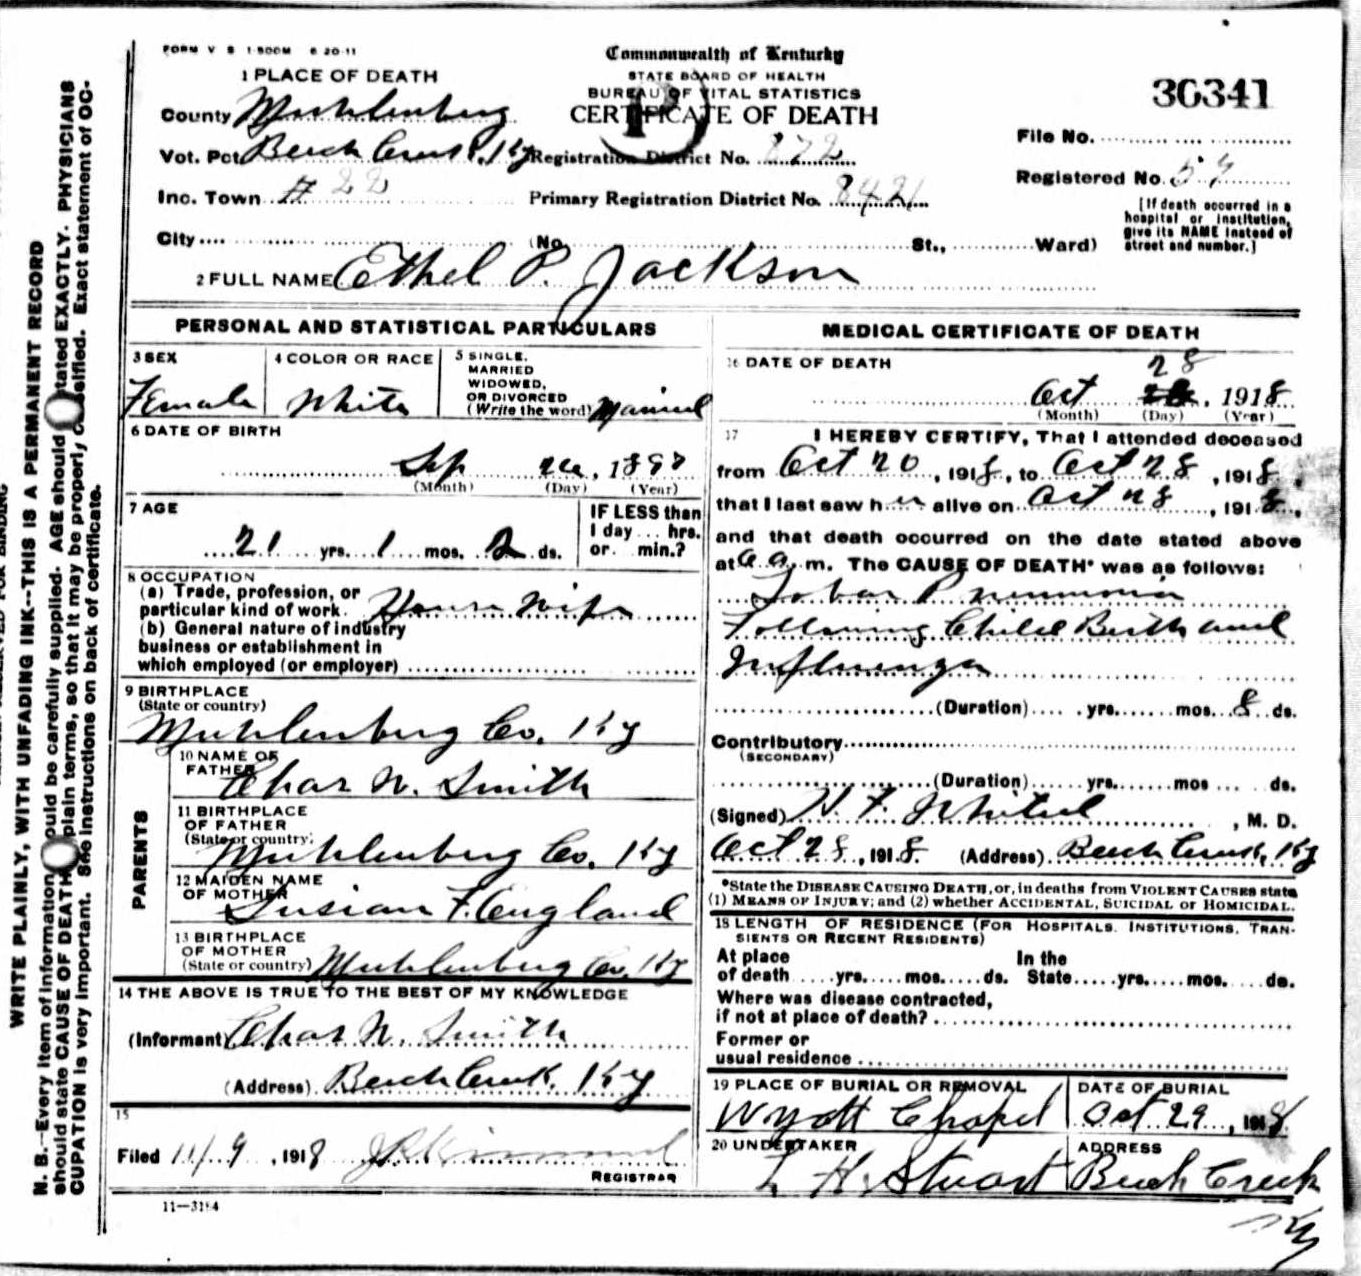 FORM V S 1-500M 6-20-11
Commonwealth of Kentucky
STATE BOARD OF HEALTH
BUREAU OF VITAL STATISTICS
CERTIFICATE OF DEATH
36341
1 PLACE OF DEATH
County Muhlenberg
Vot. Pct. Beech Creek, Ky Registration District No. 872
Inc. Town # 22 Primary Registration District No. 8421
City (No. St., Ward)
File No.
Registered No. 57
[If death occurred in a hospital or institution, give its NAME instead of street and number.]
2 FULL NAME Ethel P. Jackson
PERSONAL AND STATISTICAL PARTICULARS
3 SEX
Female
4 COLOR OR RACE
White
5 SINGLE, MARRIED WIDOWED, OR DIVORCED (Write the word) Married
6 DATE OF BIRTH
Sep 26, 1897
(Month) (Day) (Year)
7 AGE
21 yrs. 1 mos. 2 ds.
IF LESS than 1 day ... hrs. or ... min.?
8 OCCUPATION
(a) Trade, profession, or
particular kind of work. House Wife
(b) General nature of industry
business or establishment in
which employed (or employer)
9 BIRTHPLACE
(State or country)
Muhlenberg Co. Ky
PARENTS
10 NAME OF FATHER
Chas N. Smith
11 BIRTHPLACE OF FATHER
(State or country)
Muhlenberg Co. Ky
12 MAIDEN NAME OF MOTHER
Susian F. England
13 BIRTHPLACE OF MOTHER
(State or country) Muhlenberg Co. Ky
14 THE ABOVE IS TRUE TO THE BEST OF MY KNOWLEDGE
(Informant) Chas N. Smith
(Address) Beech Creek, Ky
15
Filed 11/9, 1918
REGISTRAR
11-3184
MEDICAL CERTIFICATE OF DEATH
16 DATE OF DEATH
28
Oct , 1918
(Month) (Day) (Year)
17 I HEREBY CERTIFY, That I attended deceased
from Oct 20, 1918, to Oct 28, 1918,
that I last saw her alive on Oct 28, 1918,
and that death occurred on the date stated above
at a. m. The CAUSE OF DEATH* was as follows:
Lobar Pneumonia
Following Child Birth and
Influenza
(Duration) yrs. mos. 8 ds.
Contributory
(SECONDARY)
(Duration) yrs. mos ds.
(Signed) , M. D.
Oct 28, 1918. (Address) Beech Creek, Ky
*State the DISEASE CAUSING DEATH, or, in deaths from VIOLENT CAUSES state
(1) MEANS OF INJURY; and (2) whether ACCIDENTAL, SUICIDAL or HOMICIDAL.
18 LENGTH OF RESIDENCE (FOR HOSPITALS. INSTITUTIONS, TRANSIENTS OR RECENT RESIDENTS)
At place of death yrs. mos. ds. In the State yrs. mos. ds.
Where was disease contracted,
if not at place of death?
Former or
usual residence
19 PLACE OF BURIAL OR REMOVAL
Wyatt Chapel
DATE OF BURIAL
Oct 29, 1918
20 UNDERTAKER
L H. Stuart
ADDRESS
Beech Creek
Ky
WRITE PLAINLY, WITH UNFADING INK--THIS IS A PERMANENT RECORD
N. B.--Every item of information should be carefully supplied. AGE should be stated EXACTLY. PHYSICIANS
should state CAUSE OF DEATH in plain terms, so that it may be properly classified. Exact statement of OC-
CUPATION is very important. See instructions on back of certificate.